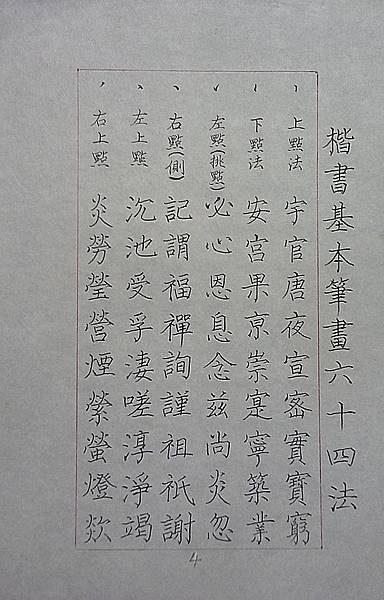 楷書基本筆畫六十四法
丶 上點法 宇官唐夜宣密實寶窮
丶 下點法 安宮果京崇寔寧築業
丶 左點(挑點) 必心恩息念茲尚炎忽
丶 右點(側) 記謂福禪詢謹祖祇謝
丶 左上點 沉池受孚淒嗟淳淨竭
丶 右上點 炎勞瑩營煙縈螢燈欻
4